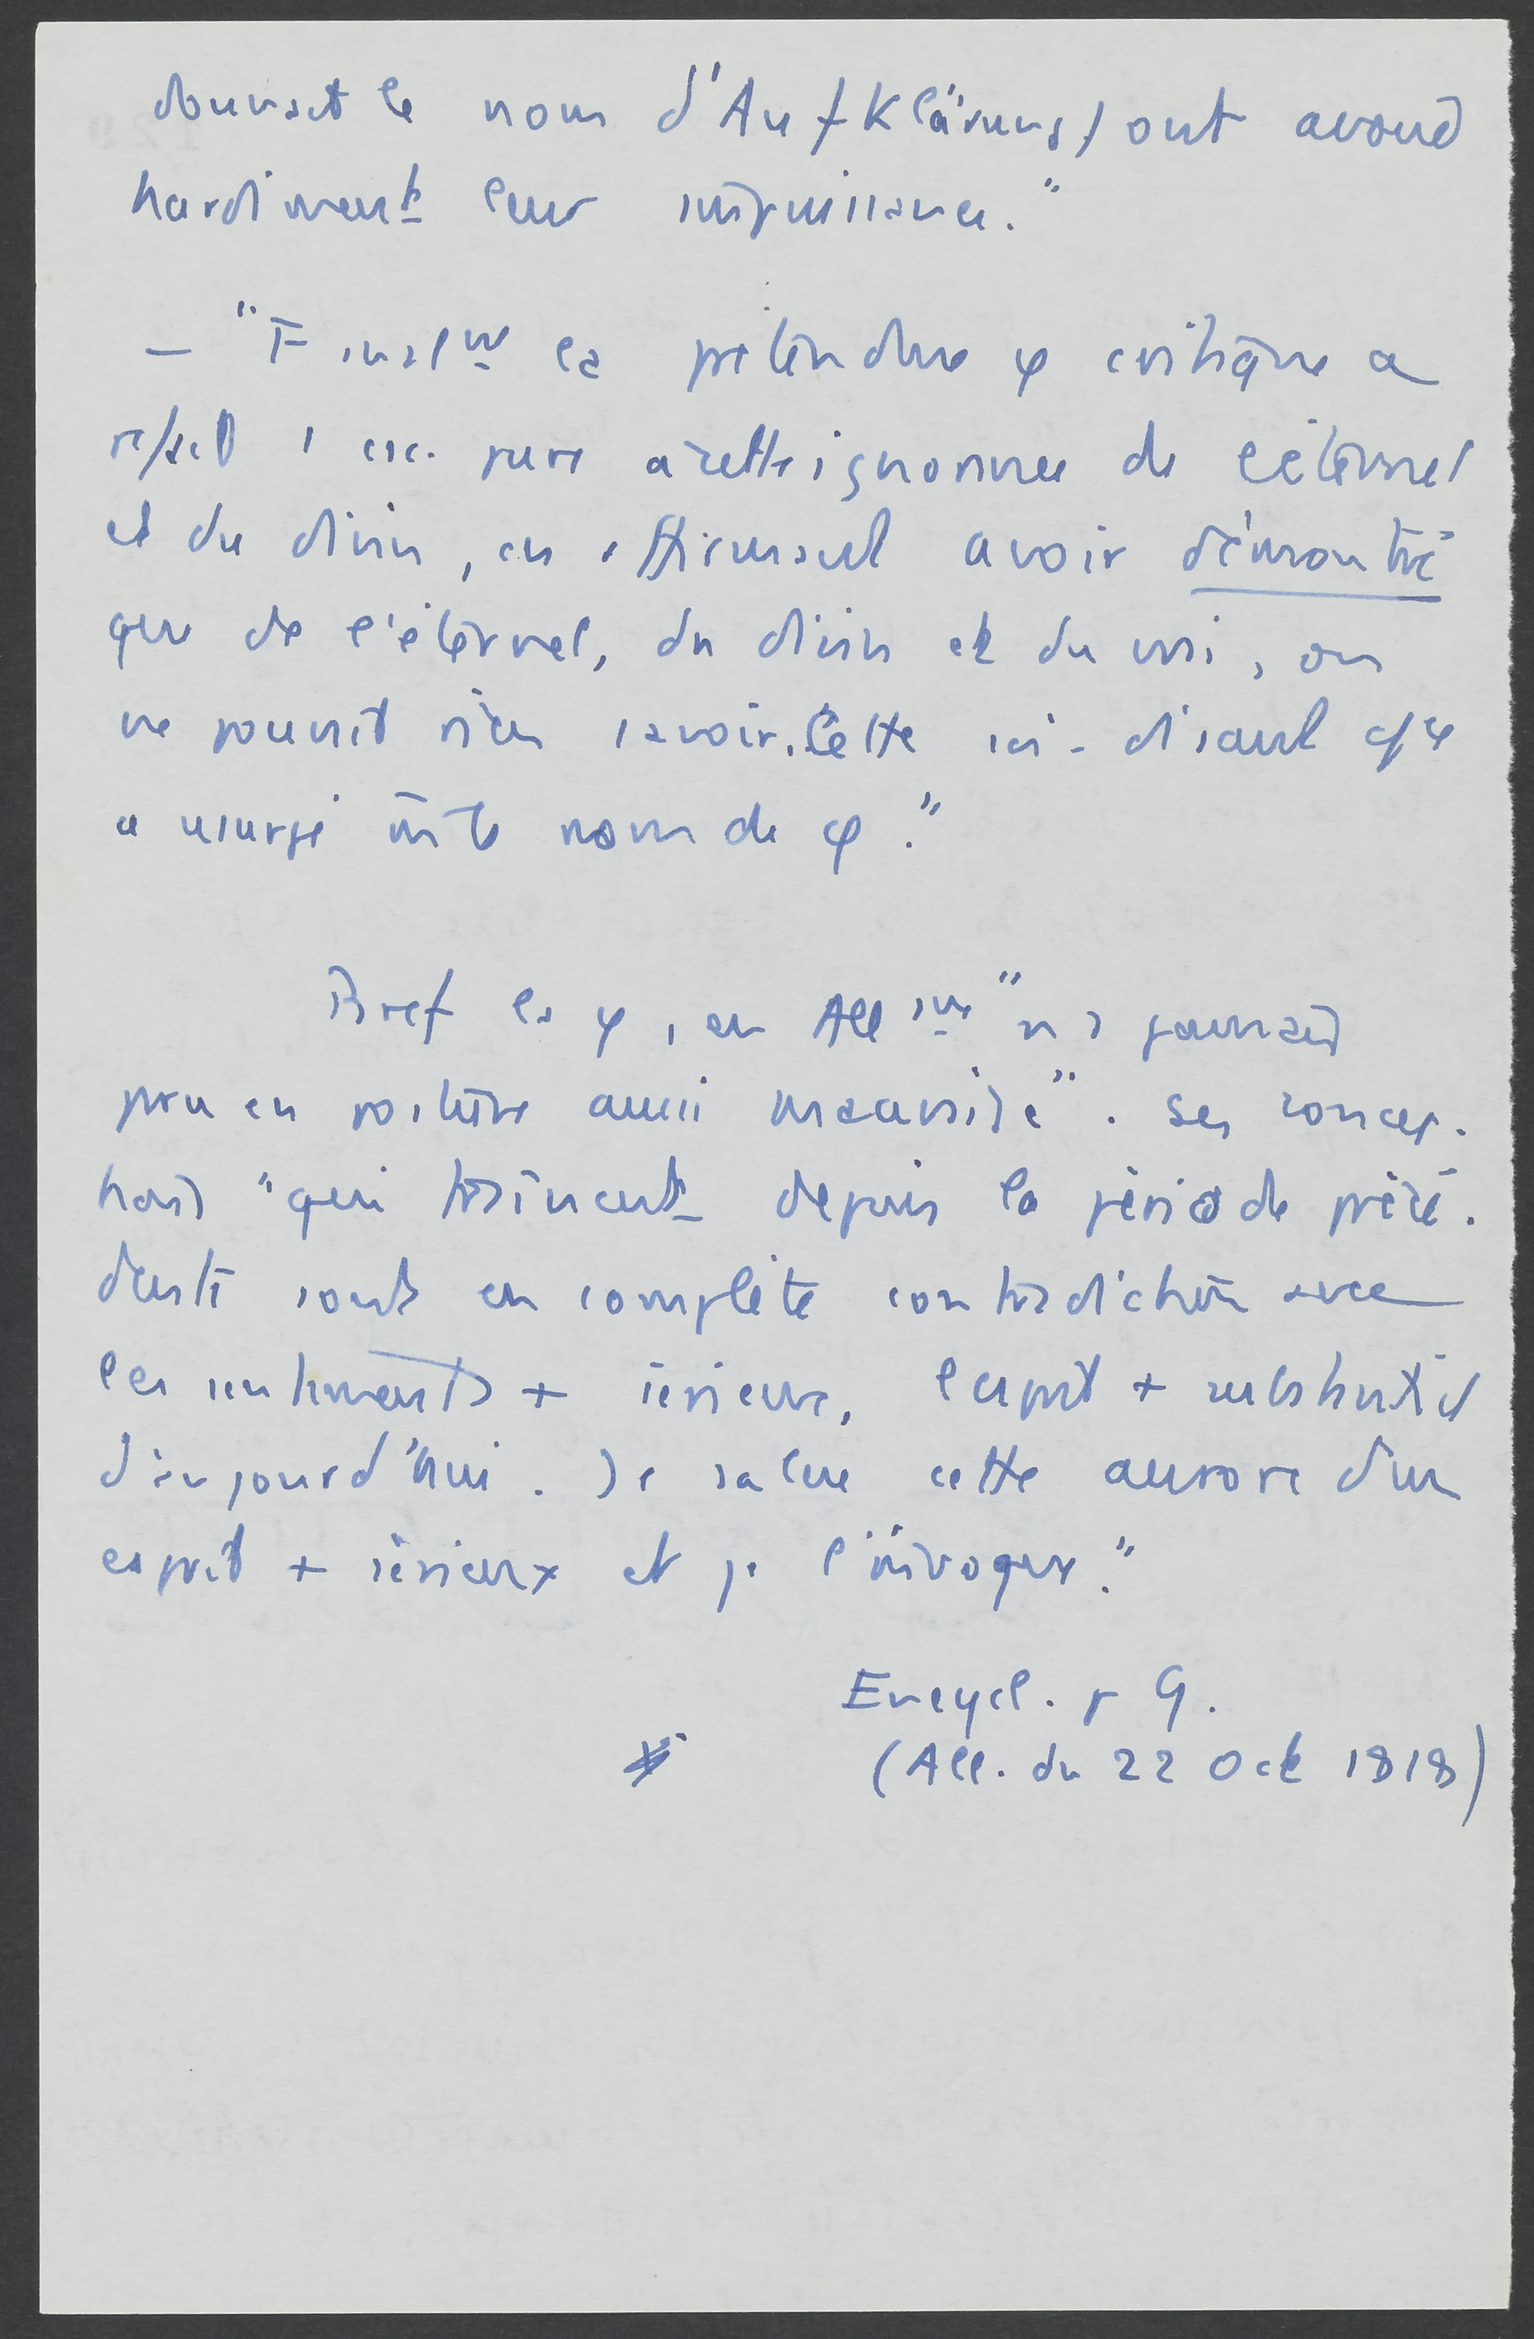 donnait le nom d'Aufklärung) ont avoué
hardiment leur impuissance."
— "Finalmt la prétendue φ critique a
refait 1 csc. pure à cette ignorance de l'éternel
et du divin, en affirmant avoir démontré
que de l'éternel, du divin et du vrai, on
ne pouvait rien savoir. Cette soi-disant
a usurpé le nom de φ."
Bref la φ, en Allgne "n'a jamais
en posture aussi mauvaise". Ses concep-
tions "qui traînent depuis la période précé-
dente sont en complète contradiction avec
les sentiments + sérieux, l'esprit + substantiel
d'aujourd'hui. Je salue cette aurore d'un
esprit + sérieux et je l'invoque."
Encycl. p 9.
(All. du 22 Oct 1818)